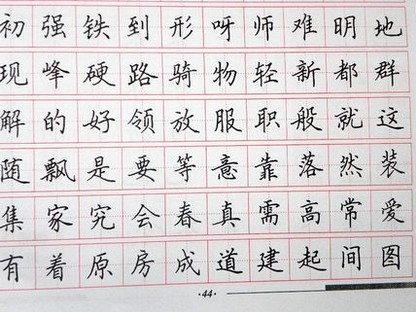 初强铁到形呀师难明地
现峰硬路骑物轻新都群
解的好领放服职般就这
随飘是要等意靠落然装
集家究会春真需高常爱
有着原房成道建起间图
·44·